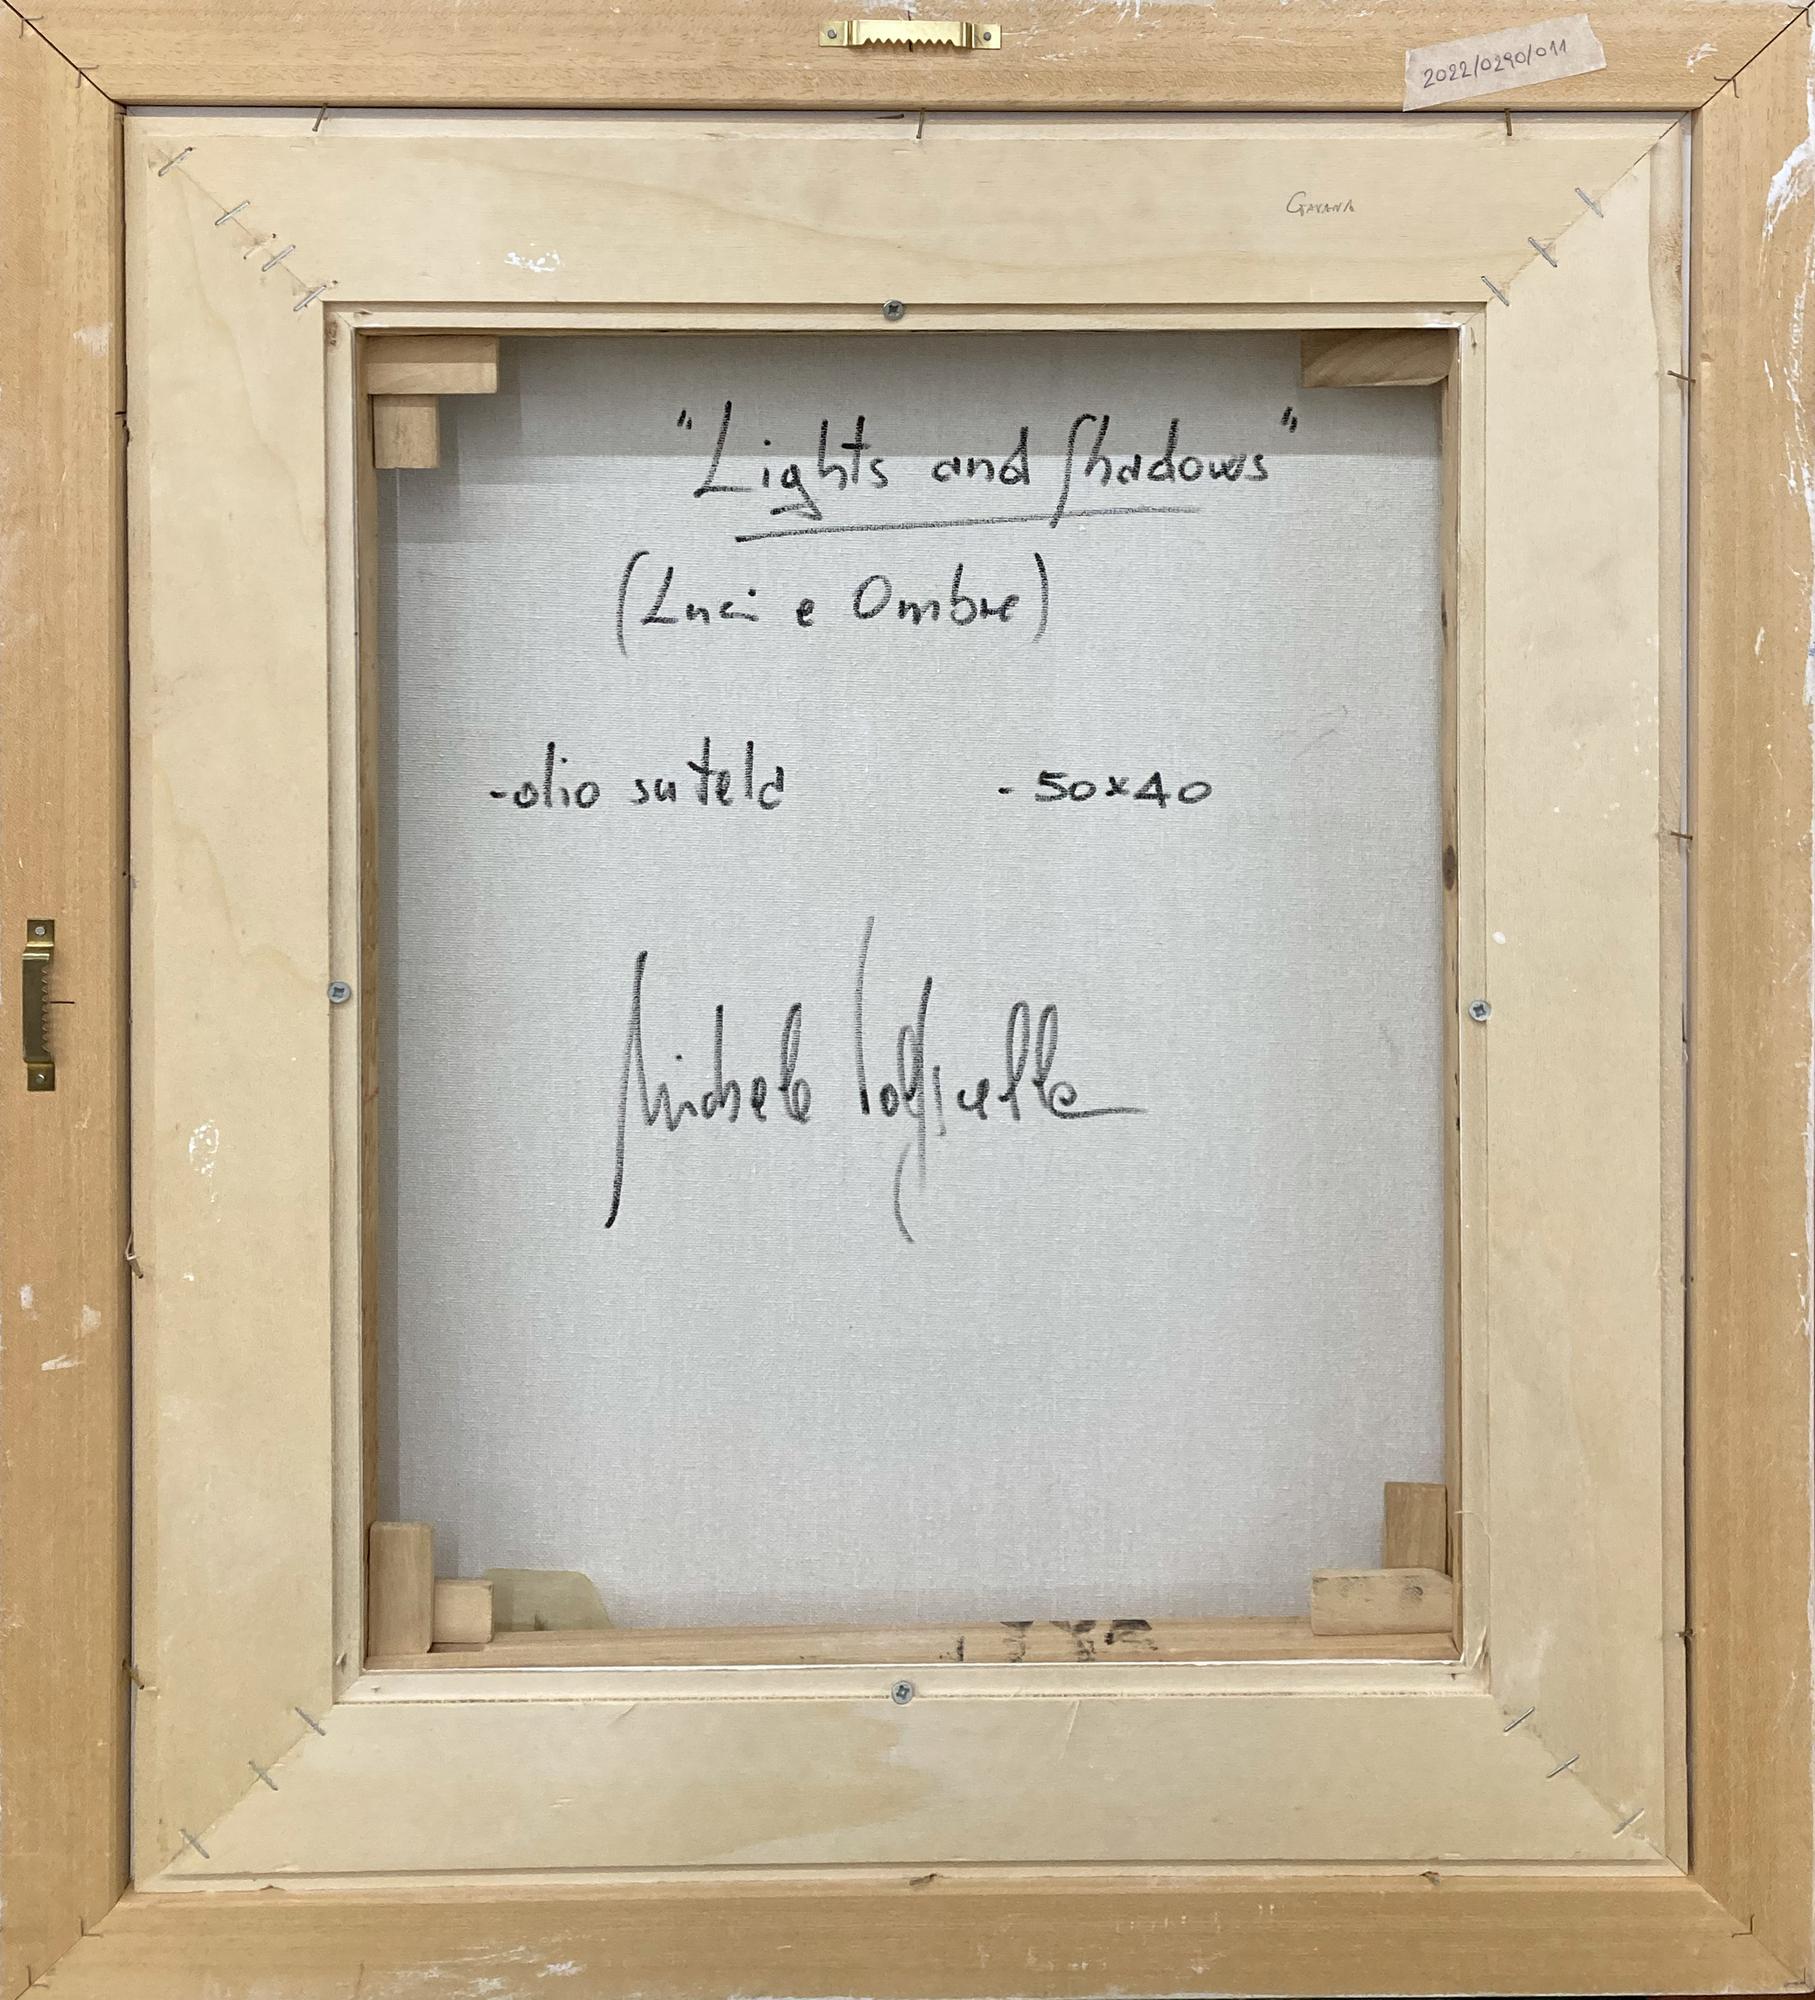 2022/0290/011
GAVANA
"Lights and Shadows"
(Luci e Ombre)
-olio su tela - 50x40
Michele